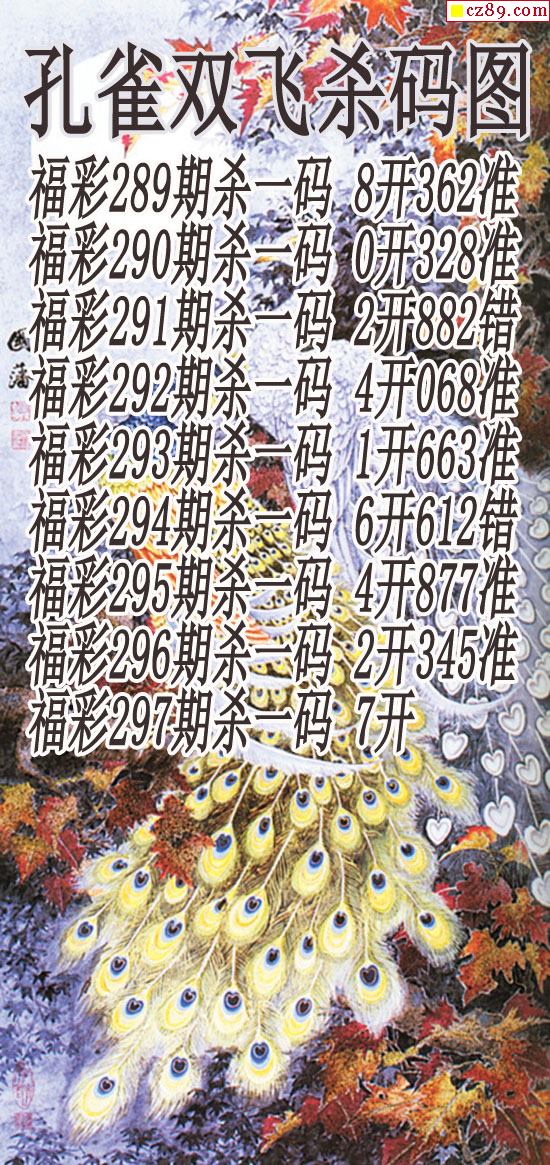 cz89.com
孔雀双飞杀码图
福彩289期杀一码 8开362准
福彩290期杀一码 0开328准
福彩291期杀一码 2开882错
福彩292期杀一码 4开068准
福彩293期杀一码 1开663准
福彩294期杀一码 6开612错
福彩295期杀一码 4开877准
福彩296期杀一码 2开345准
福彩297期杀一码 7开